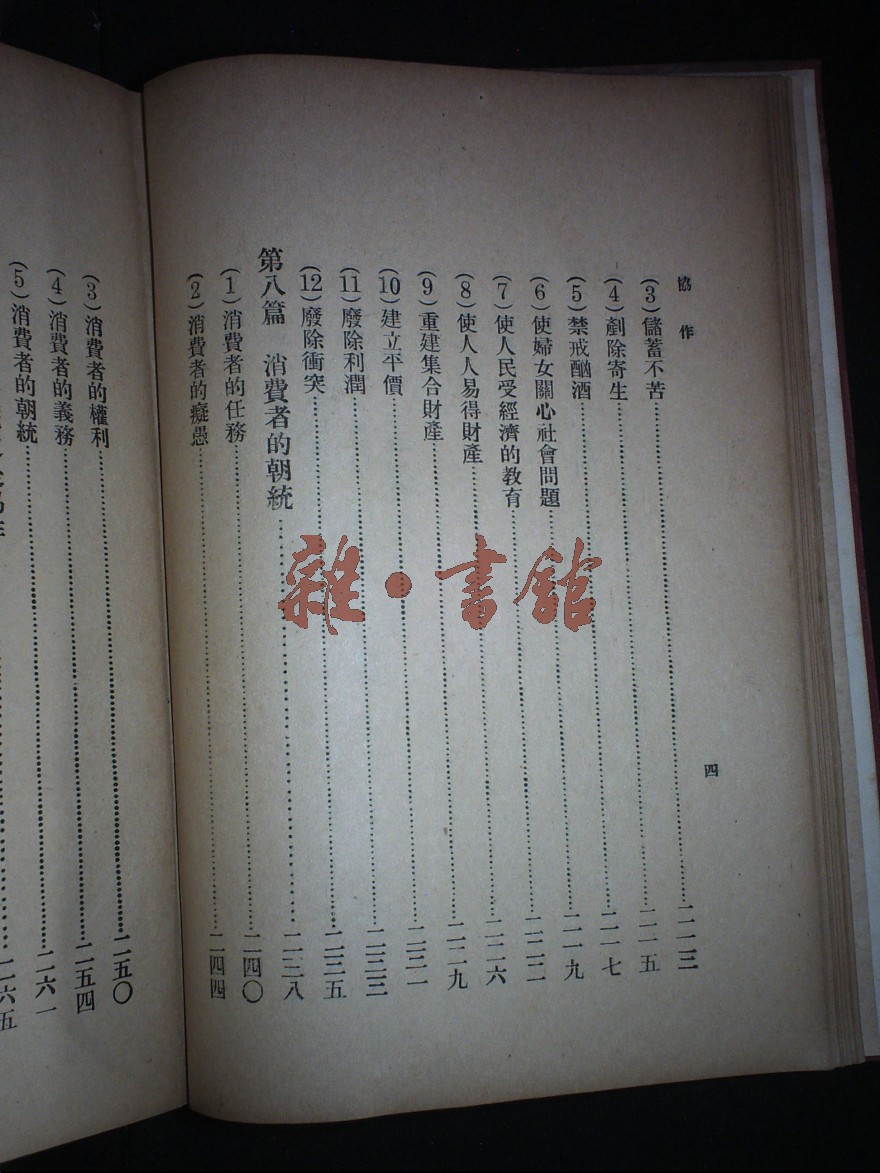 協作
四
(3)儲蓄不苦……二一三
(4)剷除寄生……二一五
(5)禁戒酗酒……二一七
(6)使婦女關心社會問題……二一九
(7)使人民受經濟的教育……二二二
(8)使人人易得財產……二二六
(9)重建集合財產……二二九
(10)建立平價……二三一
(11)廢除利潤……二三三
(12)廢除衝突……二三五
第八篇 消費者的朝統……二三八
(1)消費者的任務……二四〇
(2)消費者的癡愚……二四四
(3)消費者的權利……二五〇
(4)消費者的義務……二五四
(5)消費者的朝統……二六一
二六五
雜·書館